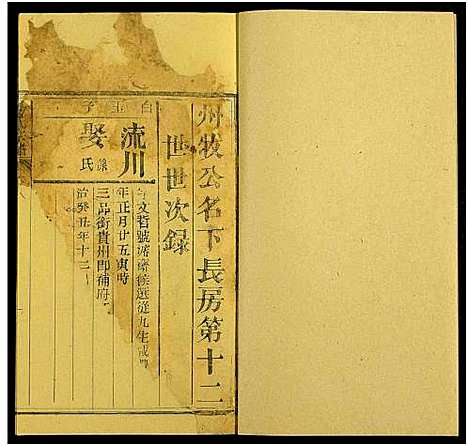 州牧公名下長房第十二
世世次錄
白玉子
流川
娶孫氏
文哲號濬齋候選從九生咸
年正月廿五寅時
三品銜貴州即補府
治癸丑年十三